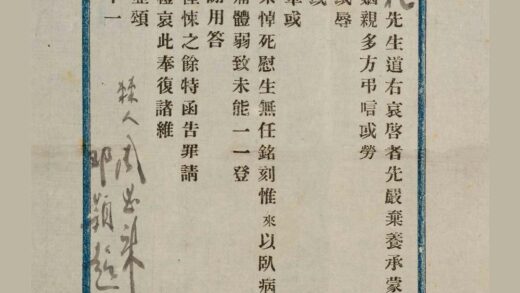 先生道右哀啓者先嚴棄養承蒙
姻親多方弔唁或勞
或辱
或
或
悼死慰生無任銘刻惟來以臥病
體弱致未能一一登
用答
悚之餘特函告罪請
哀此奉復諸維
一
棘人周恩来
邓颖超